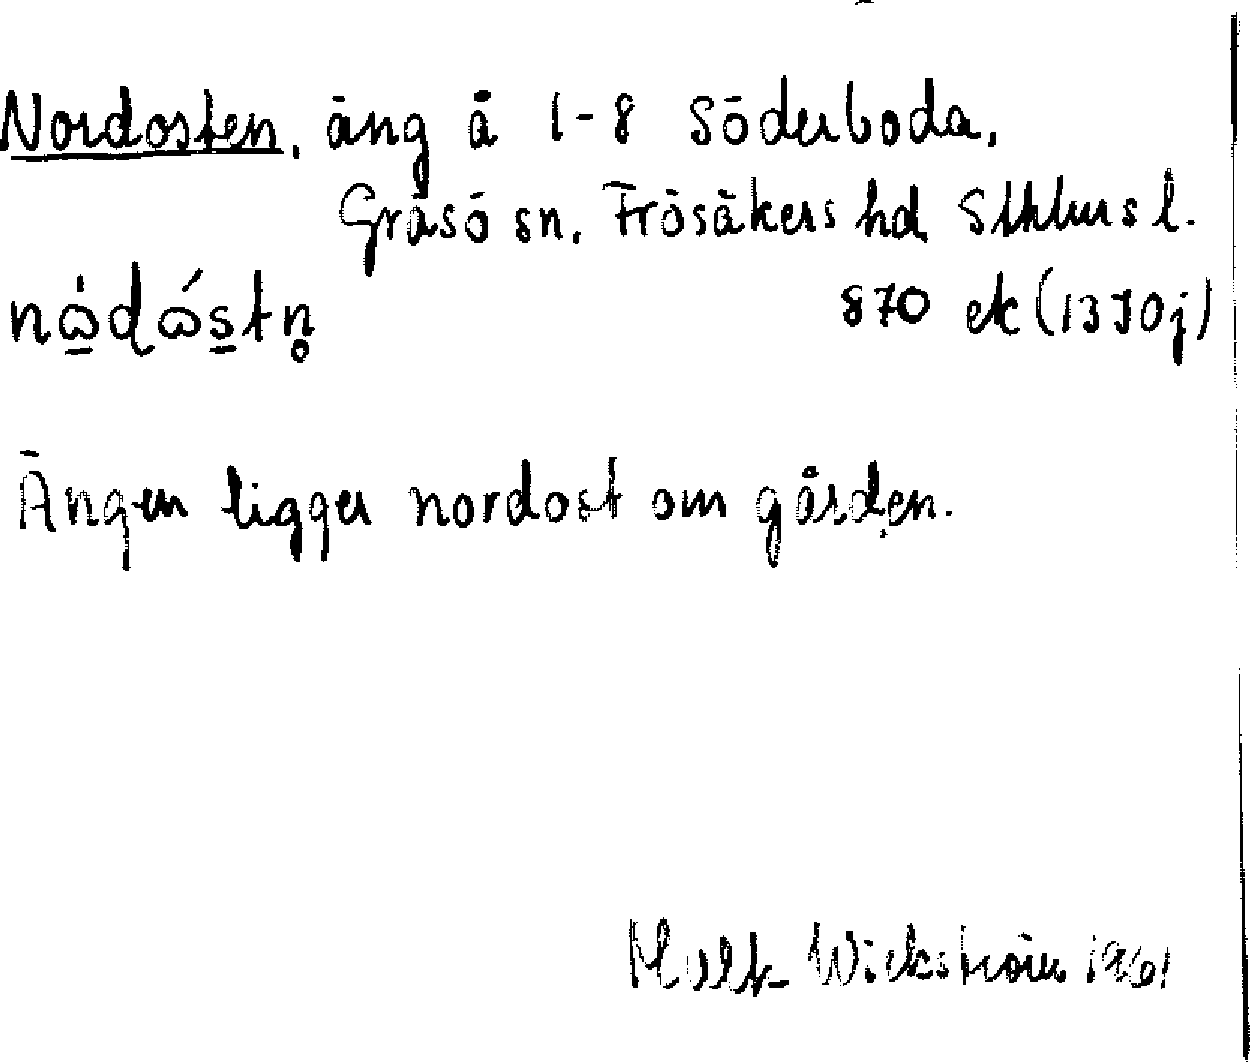 Nordosten, äng å 1-8 Söderboda,
Gräsö sn. Frösåkers hd Sthlms l.
870 ek (1370j)
Ängen ligger nordost om gården.
Wickström 1961